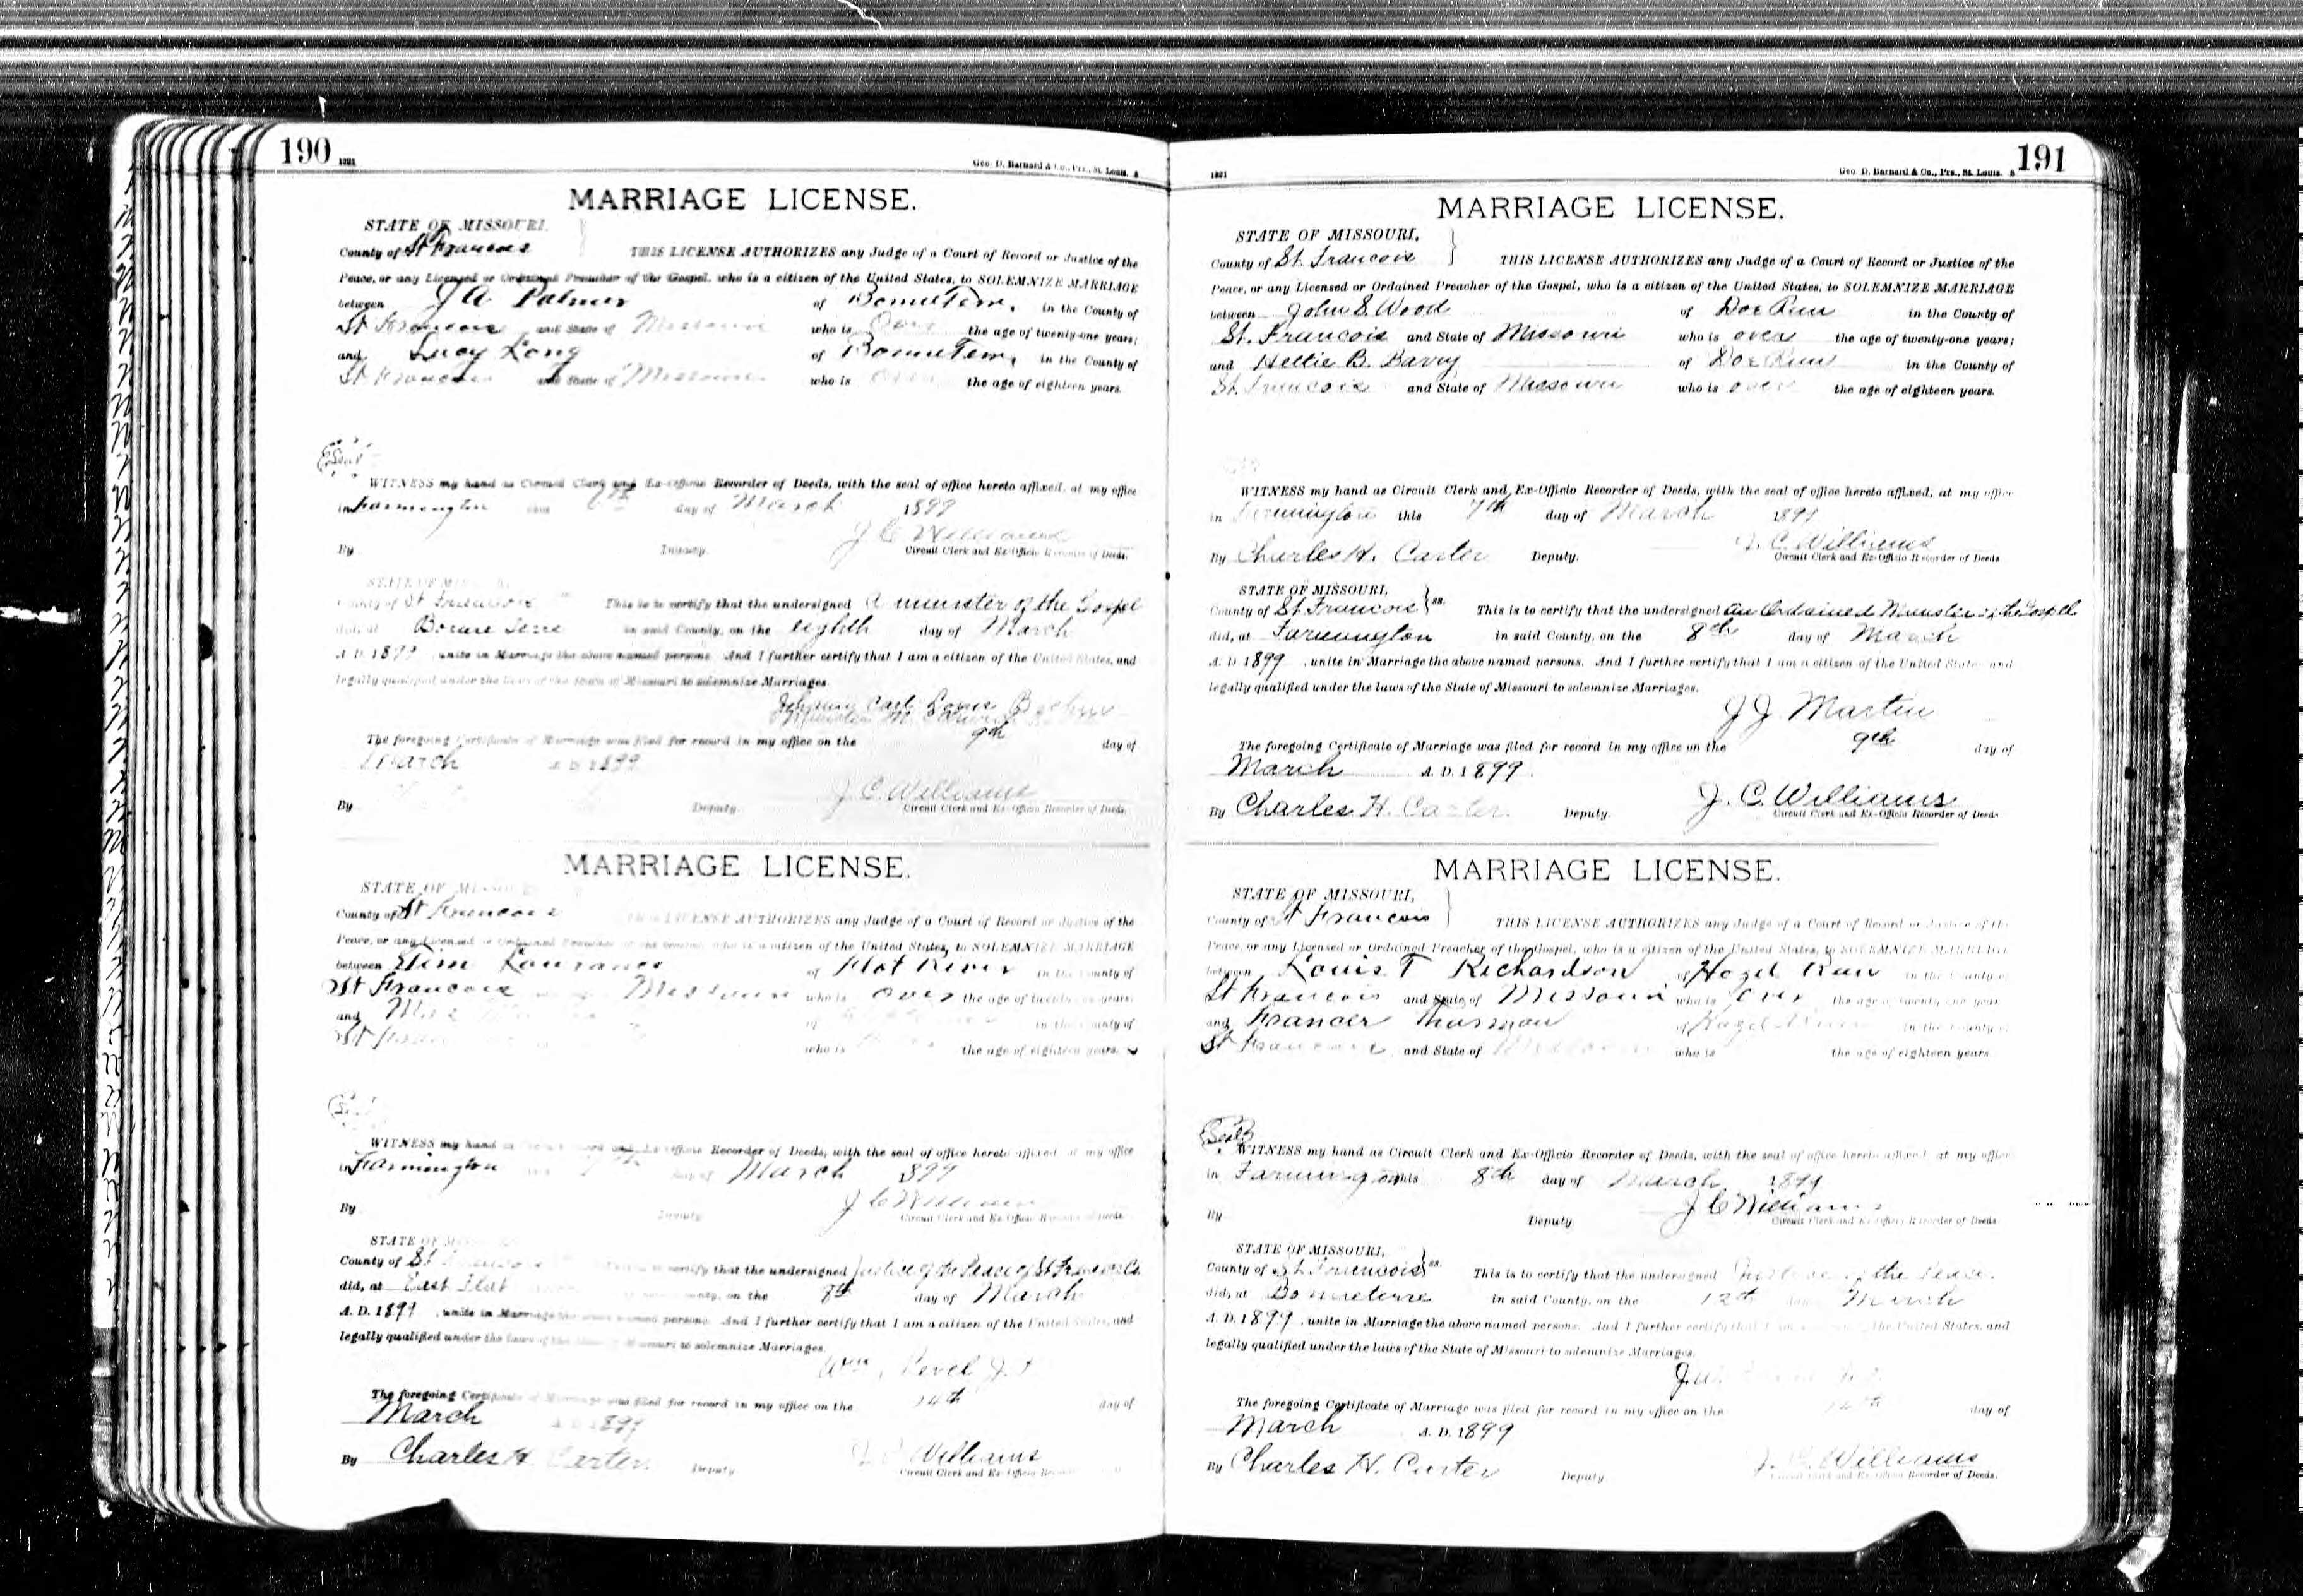 190 1221
Geo. D. Barnard & Co., Prs., St. Louis. 8
MARRIAGE LICENSE.
STATE OF MISSOURI,
County of St Francois THIS LICENSE AUTHORIZES any Judge of a Court of Record or Justice of the
Peace, or any Licensed or Ordained Preacher of the Gospel, who is a citizen of the United States, to SOLEMNIZE MARRIAGE
between J A Palmer of BonneTerre, in the County of
St Francois and State of Missouri who is Over the age of twenty-one years;
and Lucy Long of BonneTerre, in the County of
St Francois and State of Missouri who is over the age of eighteen years.
Seal
WITNESS my hand as Circuit Clerk and Ex-Officio Recorder of Deeds, with the seal of office hereto affixed, at my office
in Farmington this day of March 1899
J C Williams
By Deputy. Circuit Clerk and Ex-Officio Recorder of Deeds.
STATE OF MISSOURI
County of St Francois This is to certify that the undersigned A minister of the Gospel
did, at Bonne Terre in said County, on the eighth day of March
A. D. 1899, unite in Marriage the above named persons. And I further certify that I am a citizen of the United States, and
legally qualified under the laws of the State of Missouri to solemnize Marriages.
Carl Louis
Minister M. E. Church
The foregoing Certificate of Marriage was filed for record in my office on the 9th day of
March A. D. 1899
J. C. Williams
By Deputy. Circuit Clerk and Ex-Officio Recorder of Deeds.
MARRIAGE LICENSE.
STATE OF MISSOURI
County of St Francois THIS LICENSE AUTHORIZES any Judge of a Court of Record or Justice of the
Peace, or any Licensed or Ordained Preacher of the Gospel, who is a citizen of the United States, to SOLEMNIZE MARRIAGE
between of Flat River in the County of
St Francois Missouri who is over the age of twenty-one years;
and of in the County of
St who is the age of eighteen years.
WITNESS my hand as Recorder of Deeds, with the seal of office hereto affixed at my office
in Farmington 7th day of March 1899
J C Williams
By Deputy Circuit Clerk and Ex-Officio Recorder of Deeds.
STATE OF MISSOURI
County of St This is to certify that the undersigned Justice of the Peace of St Francois Co.
did, at East Flat County, on the 8th day of March
A. D. 1899, unite in Marriage the above named persons. And I further certify that I am a citizen of the United States, and
legally qualified under the laws of the State of Missouri to solemnize Marriages.
Wm
The foregoing Certificate of Marriage was filed for record in my office on the 14th day of
March A. D. 1899
J. C. Williams
By Charles H. Carter Deputy Circuit Clerk and Ex-Officio Recorder
1221 Geo. D. Barnard & Co., Prs., St. Louis. 8 191
MARRIAGE LICENSE.
STATE OF MISSOURI,
County of St. Francois THIS LICENSE AUTHORIZES any Judge of a Court of Record or Justice of the
Peace, or any Licensed or Ordained Preacher of the Gospel, who is a citizen of the United States, to SOLEMNIZE MARRIAGE
between John S. Wood of Doe Run in the County of
St. Francois and State of Missouri who is over the age of twenty-one years;
and B. Barry of Doe Run in the County of
St. Francois and State of Missouri who is over the age of eighteen years.
WITNESS my hand as Circuit Clerk and Ex-Officio Recorder of Deeds, with the seal of office hereto affixed, at my office
in Farmington this 7th day of March 1899
J. C. Williams
By Charles H. Carter Deputy. Circuit Clerk and Ex-Officio Recorder of Deeds
STATE OF MISSOURI,
County of St. Francois ss. This is to certify that the undersigned an Ordained Minister of the Gospel
did, at Farmington in said County, on the 8th day of March
A. D. 1899, unite in Marriage the above named persons. And I further certify that I am a citizen of the United States and
legally qualified under the laws of the State of Missouri to solemnize Marriages.
J J. Martin
The foregoing Certificate of Marriage was filed for record in my office on the 9th day of
March A. D. 1899.
J. C. Williams
By Charles H. Carter Deputy. Circuit Clerk and Ex-Officio Recorder of Deeds.
MARRIAGE LICENSE.
STATE OF MISSOURI,
County of St Francois THIS LICENSE AUTHORIZES any Judge of a Court of Record or Justice of the
Peace, or any Licensed or Ordained Preacher of the Gospel, who is a citizen of the United States, to SOLEMNIZE MARRIAGE
between Louis T Richardson of Hazel Run in the County of
St Francois and State of Missouri who is over the age of twenty-one years
and Frances Thurman of Hazel Run in the County of
St Francois and State of Missouri who is the age of eighteen years
Seal
WITNESS my hand as Circuit Clerk and Ex-Officio Recorder of Deeds, with the seal of office hereto affixed at my office
in Farmington this 8th day of March 1899
J C Williams
By Deputy Circuit Clerk and Ex-Officio Recorder of Deeds.
STATE OF MISSOURI,
County of St. Francois ss. This is to certify that the undersigned Justice of the Peace.
did, at Bonneterre in said County, on the 12th day March
A. D. 1899, unite in Marriage the above named persons. And I further certify that I am the United States, and
legally qualified under the laws of the State of Missouri to solemnize Marriages.
The foregoing Certificate of Marriage was filed for record in my office on the 14th day of
March A. D. 1899
J. C. Williams
By Charles H. Carter Deputy Circuit Clerk and Ex-Officio Recorder of Deeds.